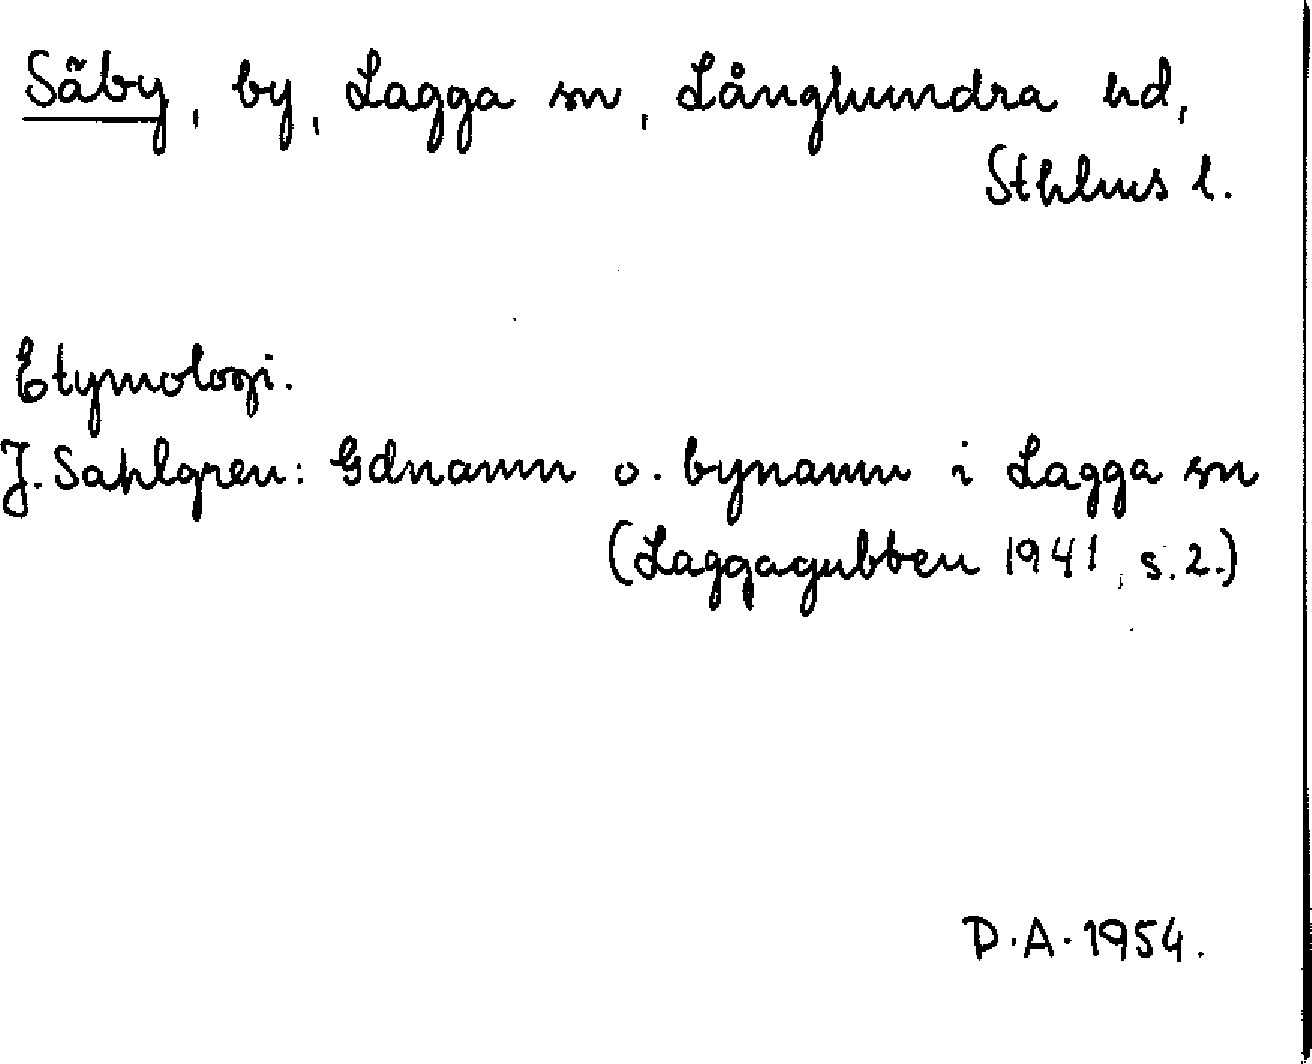 Säby, by, Lagga sn, Långhundra hd,
Sthlms l.
Etymologi.
J. Sahlgren: Gdnamn o. bynamn i Lagga sn
(Laggagubben 1941, s. 2.)
D.A. 1954.